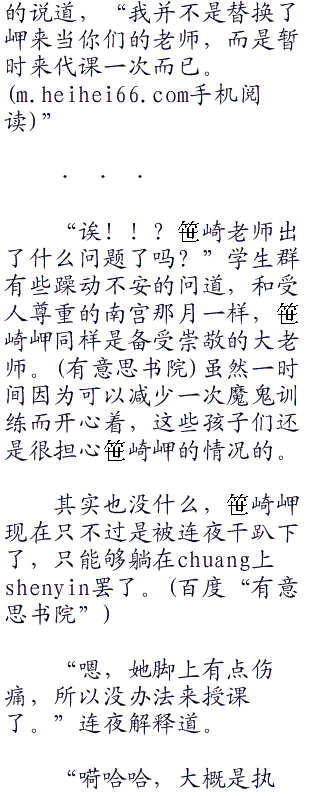 的说道，“我并不是替换了
岬来当你们的老师，而是暂
时来代课一次而已。
(m.heihei66.com手机阅
读)”
．．．
“诶！！？笹崎老师出
了什么问题了吗？”学生群
有些躁动不安的问道，和受
人尊重的南宫那月一样，笹
崎岬同样是备受崇敬的大老
师。(有意思书院)虽然一时
间因为可以减少一次魔鬼训
练而开心着，这些孩子们还
是很担心笹崎岬的情况的。
其实也没什么，笹崎岬
现在只不过是被连夜干趴下
了，只能够躺在chuang上
shenyin罢了。(百度“有意
思书院”)
“嗯，她脚上有点伤
痛，所以没办法来授课
了。”连夜解释道。
“嗬哈哈，大概是执